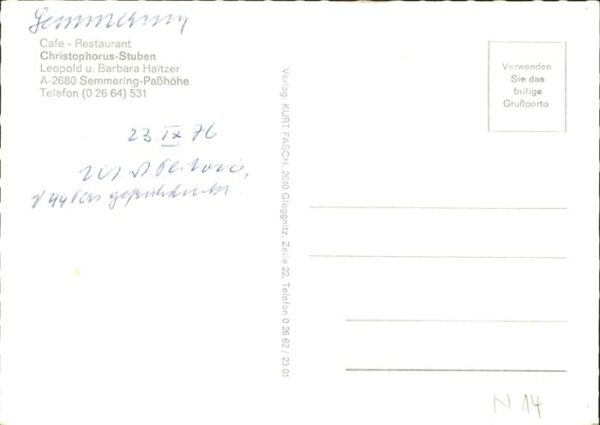 Semmering
Cafe - Restaurant
Christophorus-Stuben
Leopold u. Barbara Haitzer
A-2680 Semmering-Paßhöhe
Telefon (0 26 64) 531
23 IX 76
Verwenden
Sie das
billige
Grußporto
Verlag: KURT FASCH, 2640 Gloggnitz, Zeile 22, Telefon 0 26 62 / 23 01
N 14